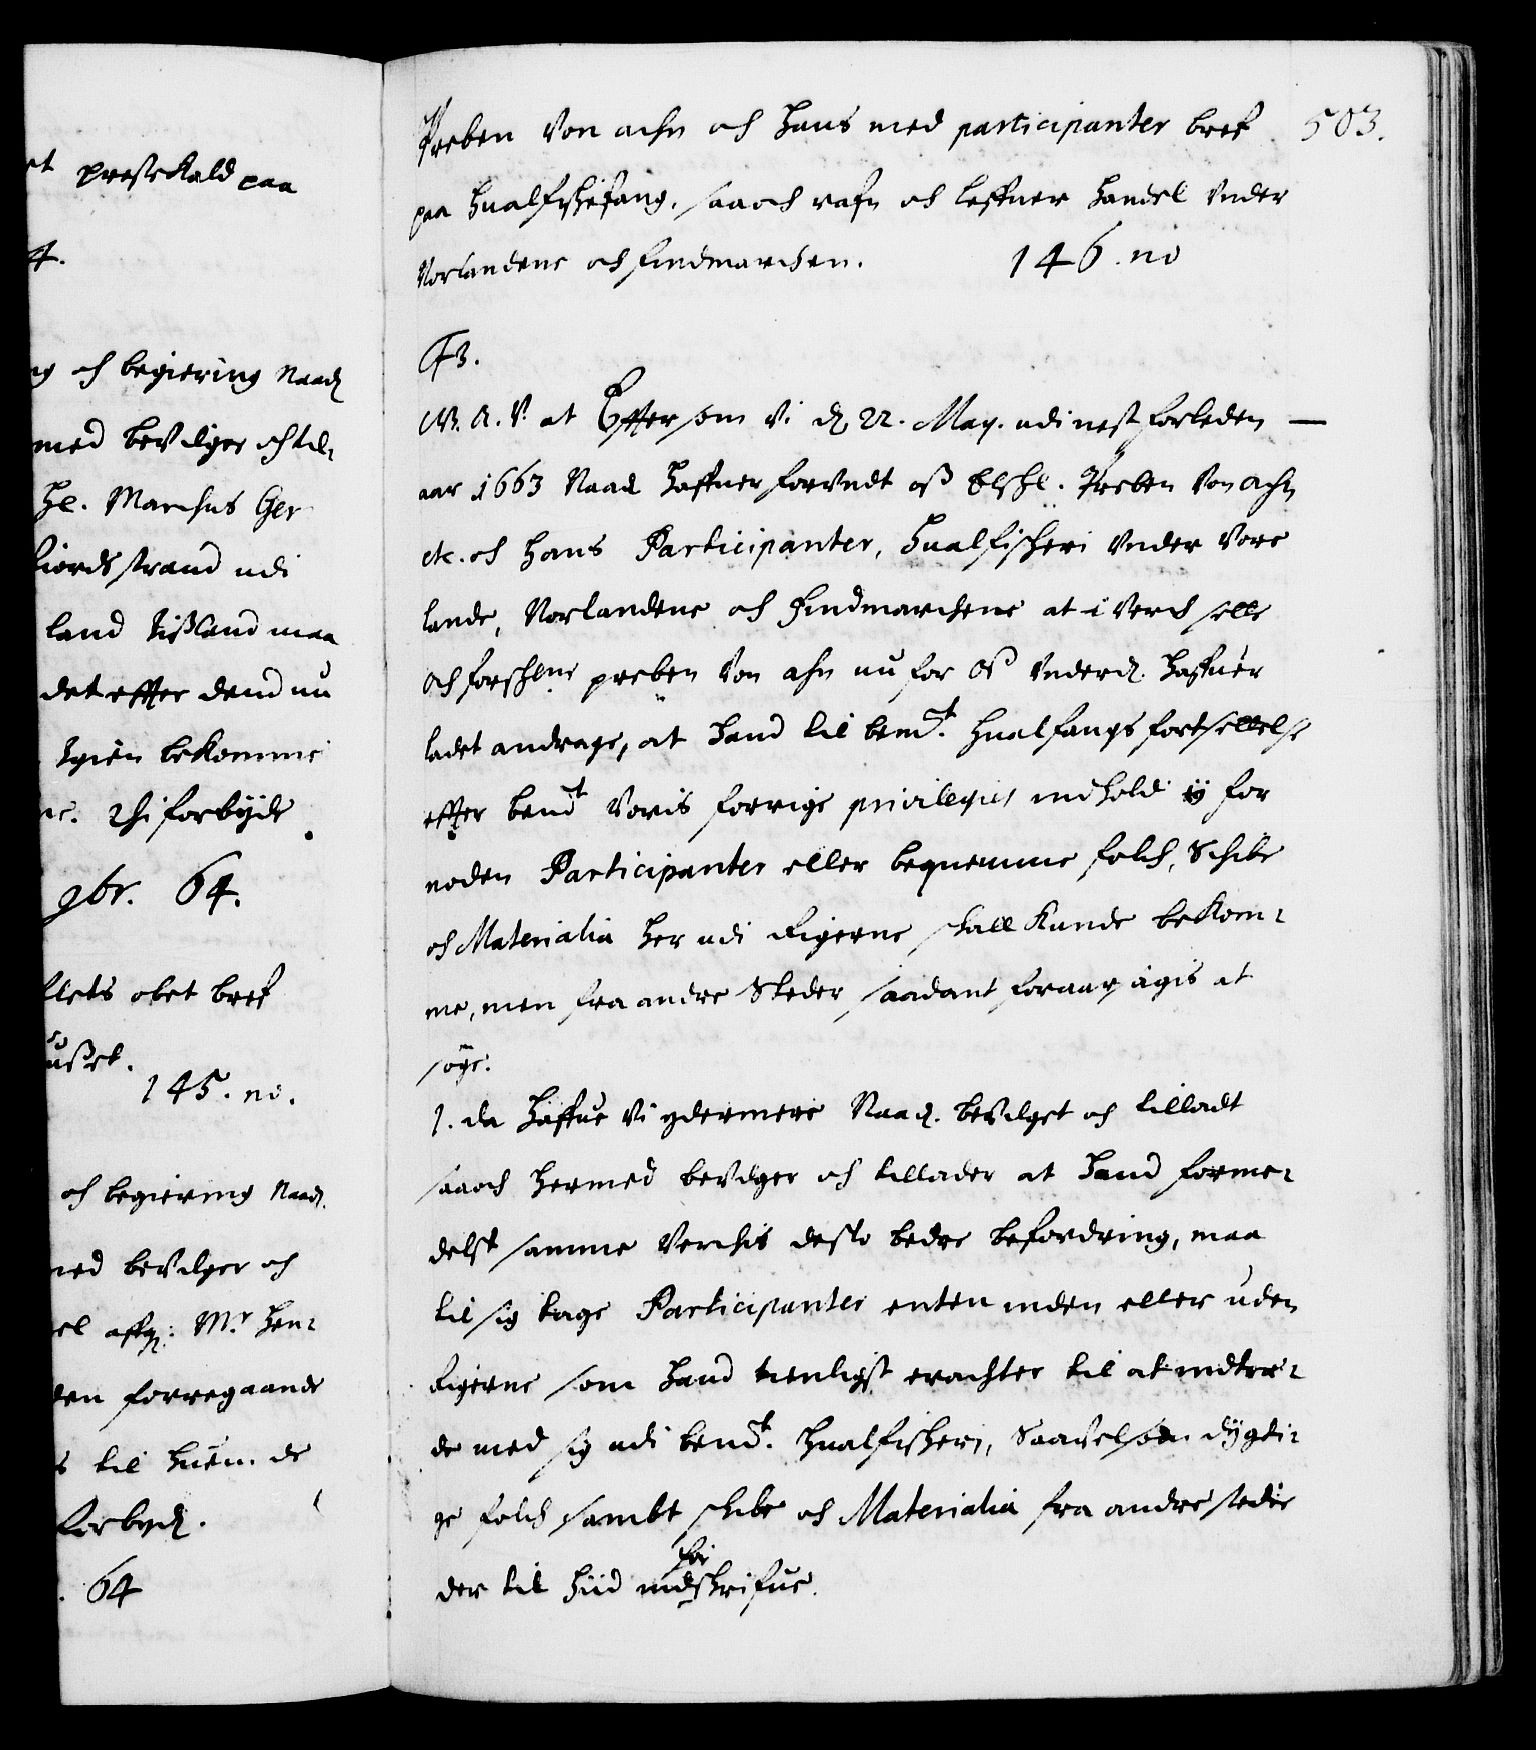 et prestekald paa
4.
ng och begiering Naad
med bevilger och til-
Hl. Marchus Ger
fiordstrand udi
land Tißland maa
det effter dend nu
Igien bekomme
ne. Thi forbyde
9br. 64.
llets obet bref
145. no.
och begiering Naad.
med bevilger och
el affg: Mr. Hen-
den forregaande
s til huem de
forbyd.
. 64
503.
Preben Von ahn och Hans med participanter bref
paa Hualfiskefang, saa och rafn och leffuer Handel Under
Norlandene och findmarchen. 146. no
F3.
W. A. V. at Effter som Vi d 22. May. udi nest forleden —
aar 1663 Naad Haffuer forundt oß Elskl. Preben Von ahn
etc. och Hans Participanter, Hualfiskeri Under Vore
lande, Norlandene och Findmarchene at i Verch selle
och forskne preben Von ahn nu for Oß Underd. Haffuer
ladet andrage, at Hand til bemt. Hualfangs fortsettelse
effter bemt Voris forrige privilegies indhold ey for
noden Participanter eller bequemme folch, Schibe
och Materialia Her udi Rigerne skall Kunde bekom-
me, men fra andre Steder saadant foraarsagis at
söge:
1. da Haffue Vi ydermere Naad. bevilget och tilladt
saa och Hermed bevilger och tillader at Hand forme-
delst samme Verchis desto bedre befordring, maa
til sig tage Participanter enten inden eller uden
Rigerne som Hand tienligst erachter til at indtræ-
de med sig udi bemt. Hualfiskeri, Saavelsom dygti-
ge folch sambt schibe och Materialia fra andre steder
der til Hiid indforskrifue.